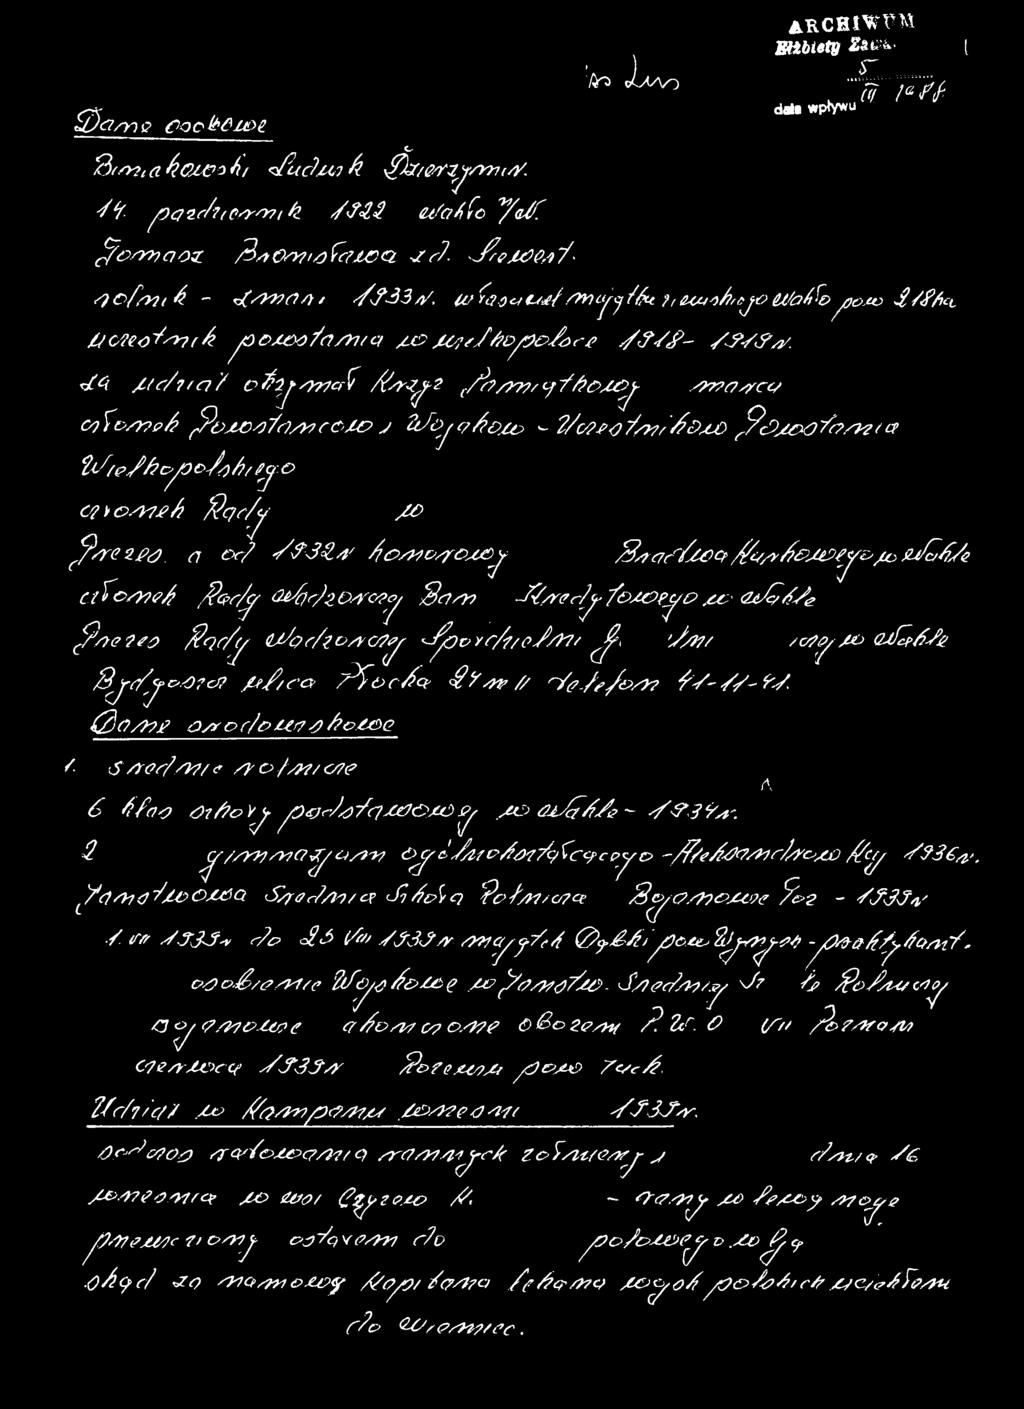 ARCHIWUM
Elżbiety Zaw.
5
III 1988
data wpływu
Dane osobowe
Biniakowski Ludwik Dzierżymir.
14. pazdziernik 1922 Wahło n/W.
Tomasz Bronisława z d. Siewert.
rolnik - zmarł 1933r. właściciel majątku ziemskiego Wahło pow 218ha
uczestnik powstania w wielkopolsce 1918- 1919r.
za udział otrzymał Krzyż Pamiątkowy marca
członek Powstańców i Wojaków - Uczestników Powstania
Wielkopolskiego
członek Rady w
Prezes, a od 1932r honorowy Bractwa Kurkowego w Wahle
członek Rady Nadzorczej Kredytowego w Wahle
Prezes Rady Nadzorczej Spółdzielni w Wahle
Bydgoszcz ulica Płocka 24 m 11 telefon 41-11-41.
Dane środowiskowe
1. średnie rolnicze
6 klas szkoły podstawowej w Wahle - 1934r.
2 gimnazjum ogólnokształcącego - Aleksandrow Kuj 1936r.
Państwowa Srednia Szkoła Rolnicza Bojanowie 1939r
1. VII 1939r do 25 VIII 1939r majątek Dąbki pow Wyrzysk - praktykant.
Wojskowe w Państw. Sredniej Rolniczej
ukończone obozem P.W. O VII Poznań
czerwca 1939r pow Tuch.
Udział w Kampanii wrzesni 1939r.
podczas ratowania rannych żołnierzy dnia 16
wrzesnia w wsi Czyżew K. - rany w lewej nodze
przewieziony ostałem do polowego w
skąd za namową Kapitana Lekarza wojsk polskich uciekłem
do